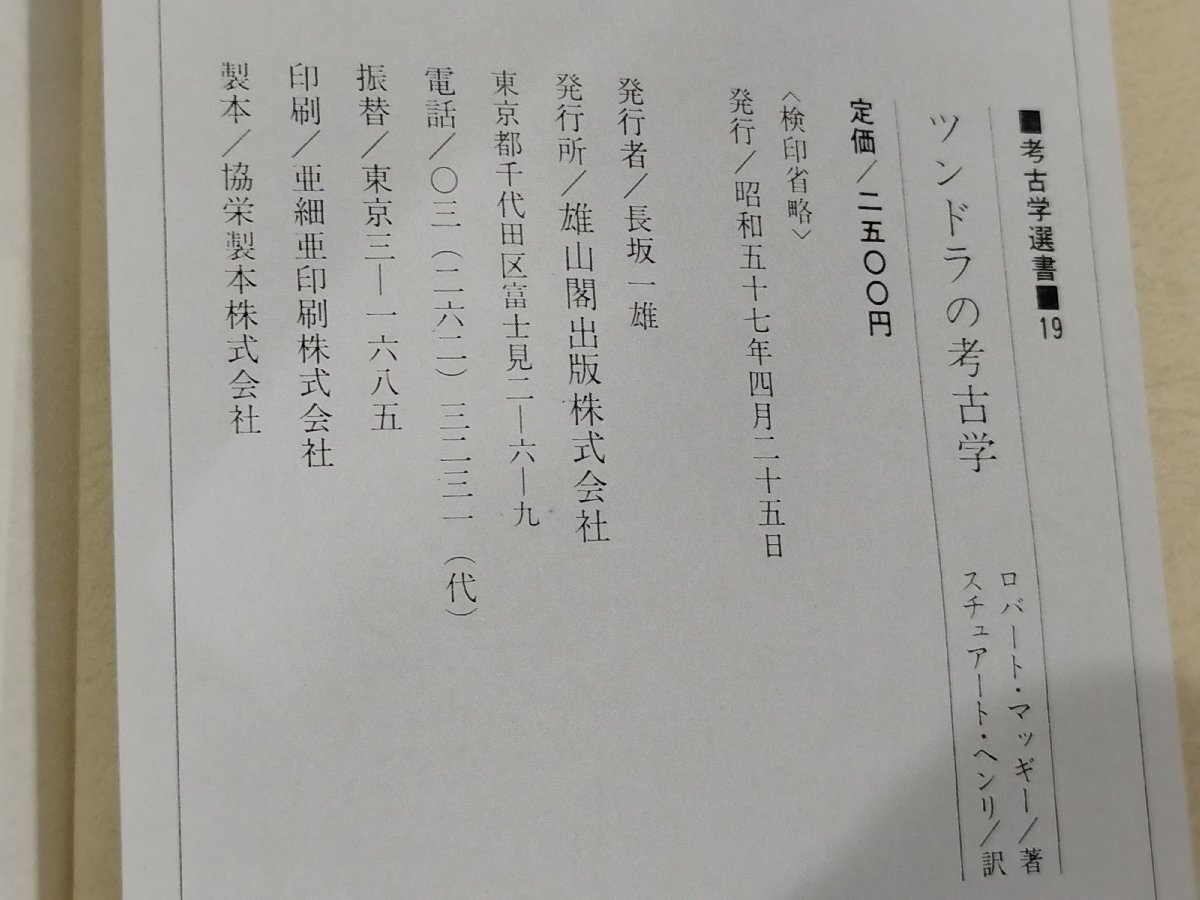 ■考古学選書■19
ツンドラの考古学
ロバート・マッギー/著
スチュアート・ヘンリ/訳
定価/二五〇〇円
〈検印省略〉
発行/昭和五十七年四月二十五日
発行者/長坂一雄
発行所/雄山閣出版株式会社
東京都千代田区富士見二―六―九
電話/〇三(二六二)三二三一(代)
振替/東京三―一六八五
印刷/亜細亜印刷株式会社
製本/協栄製本株式会社